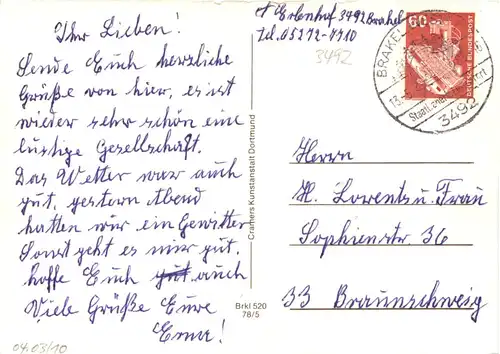 Ihr Lieben!
Sende Euch herzliche
Grüße von hier, es ist
wieder sehr schön eine
lustige Gesellschaft.
Das Wetter war auch
gut, gestern Abend
hatten wir ein Gewitter
Sonst geht es mir gut,
hoffe Euch gut auch
Viele Grüße Eure
Erna!
04.03/10
Erlenhof 3492 Brakel
tel. 05272-7910
3492
60
DEUTSCHE BUNDESPOST
BRAKEL
3492
Cramers Kunstanstalt Dortmund
Brkl 520
78/5
Herrn
H. Lorentz u. Frau
Sophienstr. 36
33 Braunschweig